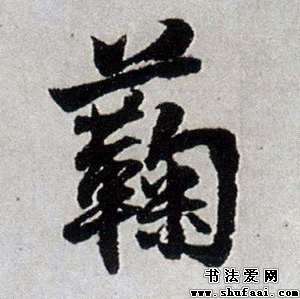 蘜
书法爱网
www.shufaai.com